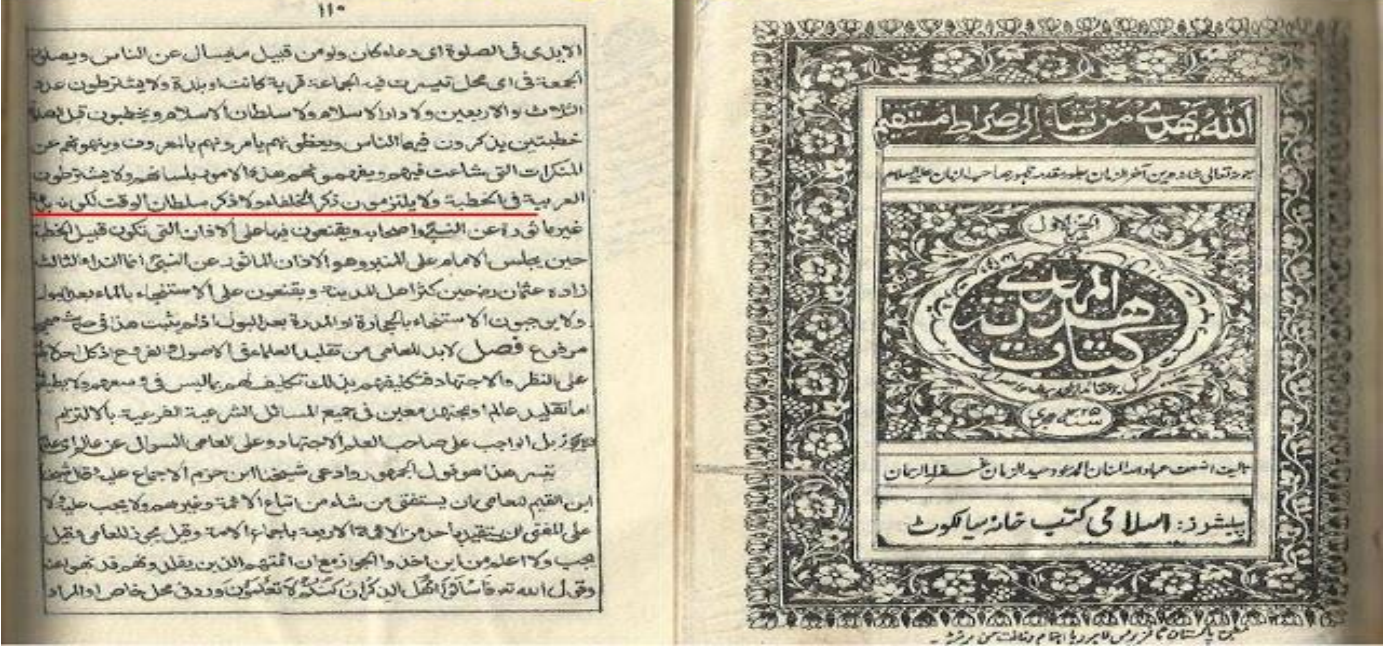 اللّٰهُ يَهْدِي مَنْ يَشَاءُ إِلَى صِرَاطٍ مُسْتَقِيمٍ
الجزء الاول
من
المهدي
هدية
كتاب
پبلشرز: اسلامی کتب خانہ سیالکوٹ
١١٠
الايدى فى الصلوة اى دعاء كان ولو من قبيل ما يسال عن الناس ويصلون
الجمعة فى اى محل تيسرت فيه الجماعة قرية كانت او بلدة ولا يشترطون عدد
الثلاث والاربعين ولا دار الاسلام ولا سلطان الاسلام ويخطبون قبل
خطبتين يذكرون فيهما الناس ويعظونهم يامرونهم بالمعروف وينهونهم عن
المنكرات التى شاعت فيهم ويفهمونهم هذه الامور بلسانهم ولا يشترطون
العربية فى الخطبة ولا يلتزمون ذكر الخلفاء ولا ذكر سلطان الوقت لكونه بدعة
غير ماثورة عن النبى واصحابه ويقنعون فيها على الاذان التى تكون قبيل الخطبة
حين يجلس الامام على المنبر وهو الاذان الماثور عن النبى انما النداء الثالث
زاده عثمان رض حين كثر اهل المدينة ويقنعون على الاستنجاء بالماء بعد البول
ولا يوجبون الاستنجاء بالحجارة او المدرة بعد البول اذ لم يثبت هذا فى حديث صحيح
مرفوع فصل لا بد للعامى من تقليد العلماء فى الاصول والفروع اذ كل احد لا
على النظر والاجتهاد فتكليفهم بذلك تكليف لهم بما ليس فى وسعهم ولا
اما تقليد عالم او مجتهد معين فى جميع المسائل الشرعية الفرعية بالالتزام
بل الواجب على صاحب العلم الاجتهاد وعلى العامى السوال عن عالم اى عالم
تيسر هذا هو قول الجمهور وادعى شيخنا ابن حزم الاجماع عليه وقال شيخنا
ابن القيم للعامى ان يستفتى من شاء من اتباع الائمة وغيرهم ولا يجب عليه ولا
على المفتى ان يتقيد باحد من الائمة الاربعة باجماع الامة وقيل يجوز للعامى وقيل
يجب ولا اعلم من اين اخذوا الجواز مع ان ائمتهم الذين يقلدونهم قد نهوا عنه
وقول الله تع فَاسْأَلُوا أَهْلَ الذِّكْرِ إِنْ كُنْتُمْ لَا تَعْلَمُونَ ورد فى محل خاص او المراد